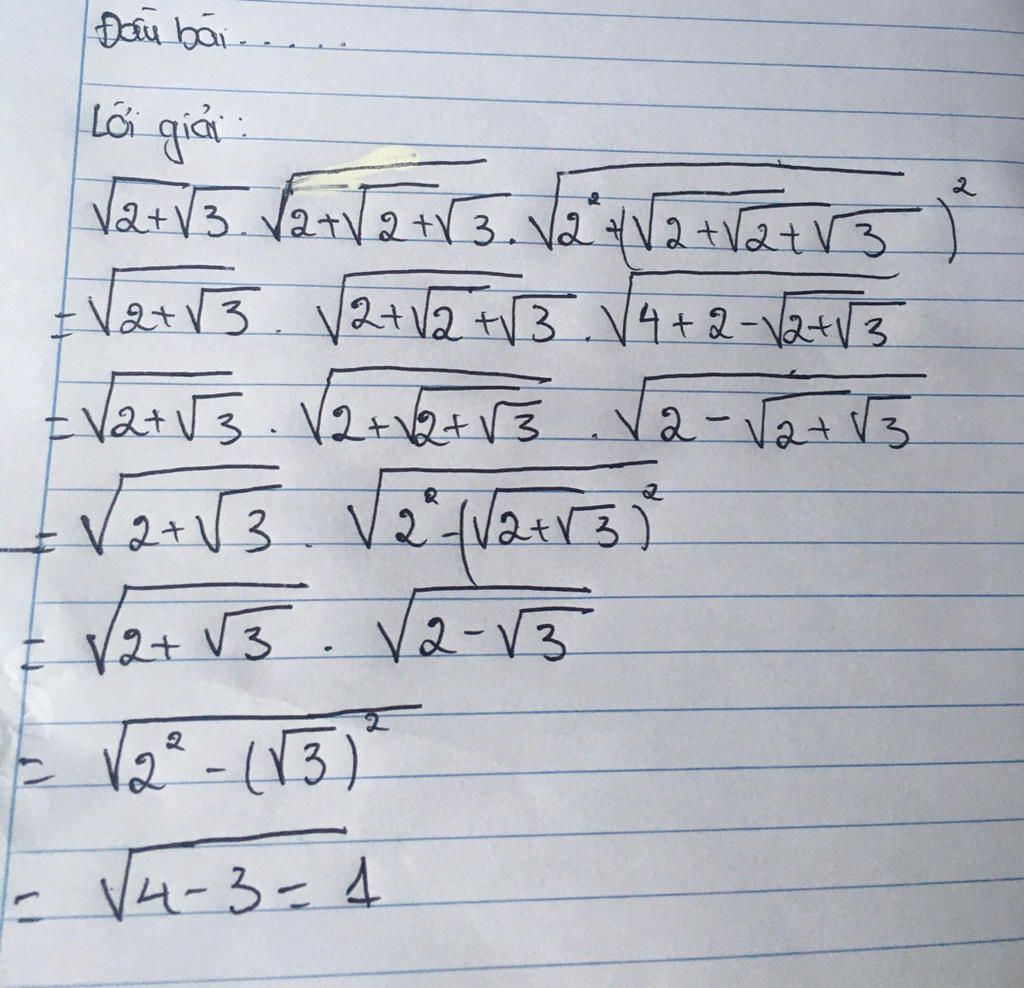 Đầu bài.....
Lời giải:
√2+√3 . √2+√2+√3 . √2²+(√2+√2+√3)²
= √2+√3 . √2+√2+√3 . √4+2-√2+√3
= √2+√3 . √2+√2+√3 . √2-√2+√3
= √2+√3 . √2²-(√2+√3)²
= √2+√3 . √2-√3
= √2²-(√3)²
= √4-3 = 1